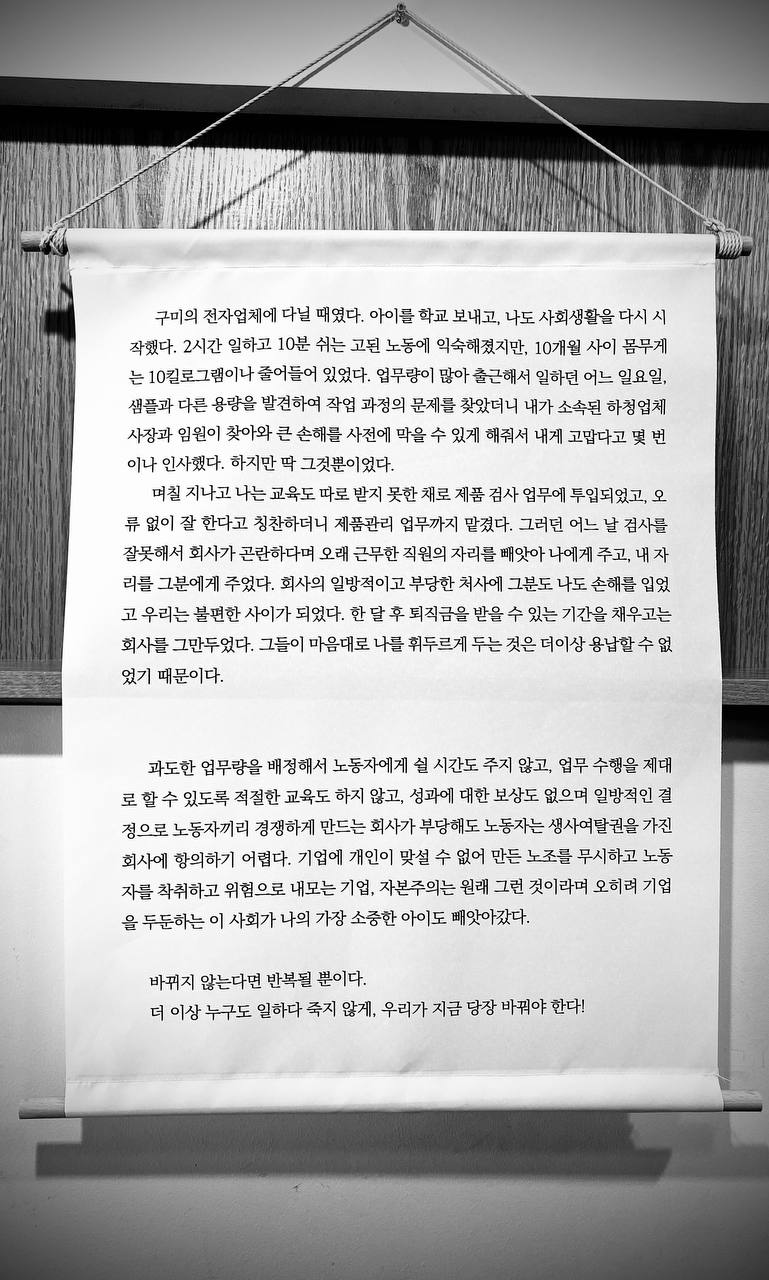 구미의 전자업체에 다닐 때였다. 아이를 학교 보내고, 나도 사회생활을 다시 시
작했다. 2시간 일하고 10분 쉬는 고된 노동에 익숙해졌지만, 10개월 사이 몸무게
는 10킬로그램이나 줄어들어 있었다. 업무량이 많아 출근해서 일하던 어느 일요일,
샘플과 다른 용량을 발견하여 작업 과정의 문제를 찾았더니 내가 소속된 하청업체
사장과 임원이 찾아와 큰 손해를 사전에 막을 수 있게 해줘서 내게 고맙다고 몇 번
이나 인사했다. 하지만 딱 그것뿐이었다.
며칠 지나고 나는 교육도 따로 받지 못한 채로 제품 검사 업무에 투입되었고, 오
류 없이 잘 한다고 칭찬하더니 제품관리 업무까지 맡겼다. 그러던 어느 날 검사를
잘못해서 회사가 곤란하다며 오래 근무한 직원의 자리를 빼앗아 나에게 주고, 내 자
리를 그분에게 주었다. 회사의 일방적이고 부당한 처사에 그분도 나도 손해를 입었
고 우리는 불편한 사이가 되었다. 한 달 후 퇴직금을 받을 수 있는 기간을 채우고는
회사를 그만두었다. 그들이 마음대로 나를 휘두르게 두는 것은 더이상 용납할 수 없
었기 때문이다.
과도한 업무량을 배정해서 노동자에게 쉴 시간도 주지 않고, 업무 수행을 제대
로 할 수 있도록 적절한 교육도 하지 않고, 성과에 대한 보상도 없으며 일방적인 결
정으로 노동자끼리 경쟁하게 만드는 회사가 부당해도 노동자는 생사여탈권을 가진
회사에 항의하기 어렵다. 기업에 개인이 맞설 수 없어 만든 노조를 무시하고 노동
자를 착취하고 위험으로 내모는 기업, 자본주의는 원래 그런 것이라며 오히려 기업
을 두둔하는 이 사회가 나의 가장 소중한 아이도 빼앗아갔다.
바뀌지 않는다면 반복될 뿐이다.
더 이상 누구도 일하다 죽지 않게, 우리가 지금 당장 바꿔야 한다!